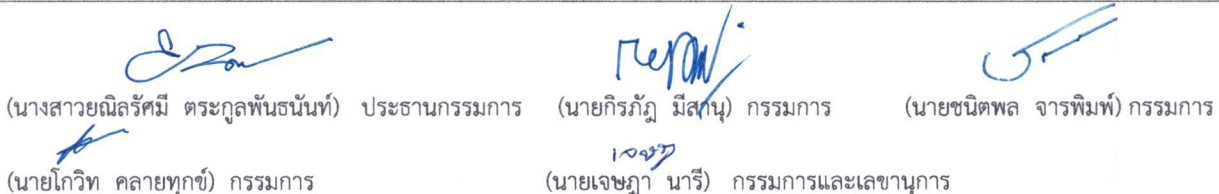 (นางสาวยณิลรัศมี ตระกูลพันธนันท์) ประธานกรรมการ (นายกิรภัฎ มีสานุ) กรรมการ (นายชนิตพล จารพิมพ์) กรรมการ
(นายโกวิท คลายทุกข์) กรรมการ (นายเจษฎา นารี) กรรมการและเลขานุการ